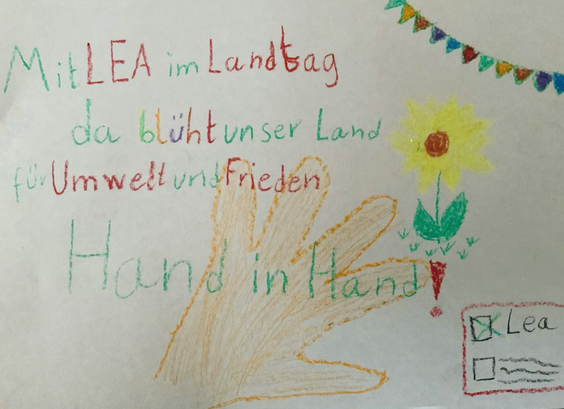 Mit LEA im Landtag
da blüht unser Land
für Umwelt und Frieden
Hand in Hand!
Lea